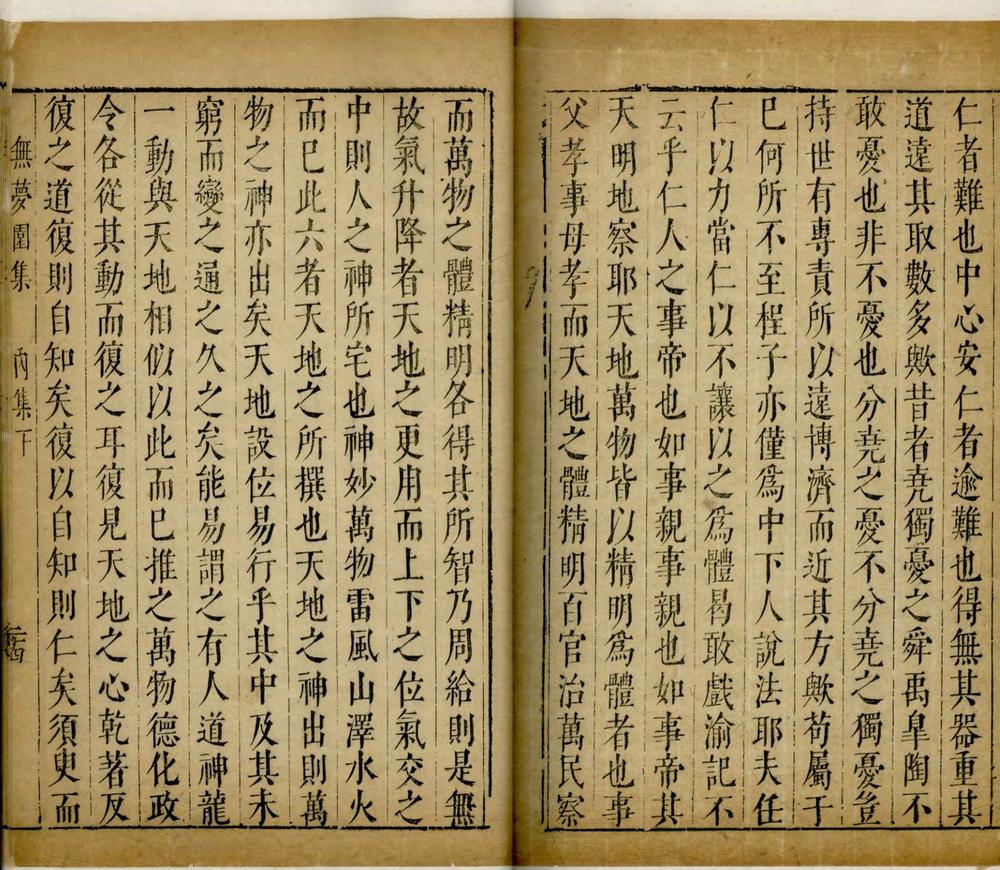 仁者難也中心安仁者逾難也得無其器重其
道遠其取數多歟昔者堯獨憂之舜禹臯陶不
敢憂也非不憂也分堯之憂不分堯之獨憂豈
持世有專責所以遠博濟而近其方歟苟屬于
巳何所不至程子亦僅爲中下人說法耶夫任
仁以力當仁以不讓以之爲體曷敢戲渝記不
云乎仁人之事帝也如事親事親也如事帝其
天明地察耶天地萬物皆以精明爲體者也事
父孝事母孝而天地之體精明百官治萬民察
而萬物之體精明各得其所智乃周給則是無
故氣升降者天地之更用而上下之位氣交之
中則人之神所宅也神妙萬物雷風山澤水火
而巳此六者天地之所撰也天地之神出則萬
物之神亦出矣天地設位易行乎其中及其未
窮而變之通之久之矣能易謂之有人道神龍
一動與天地相似以此而巳推之萬物德化政
令各從其動而復之耳復見天地之心乾著反
復之道復則自知矣復以自知則仁矣須臾而
無夢園集 丙集下